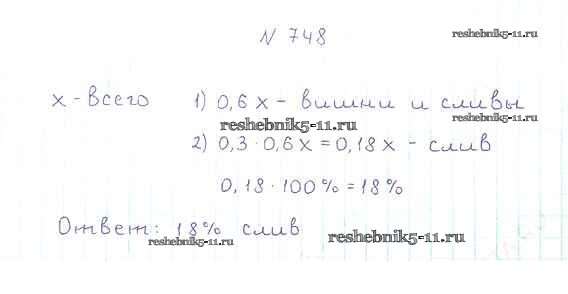 N 748
reshebnik5-11.ru
x - всего 1) 0,6 x - вишни и сливы
reshebnik5-11.ru
reshebnik5-11.ru
2) 0,3 · 0,6 x = 0,18 x - слив
0,18 · 100 % = 18 %
Ответ: 18 % слив
reshebnik5-11.ru
reshebnik5-11.ru